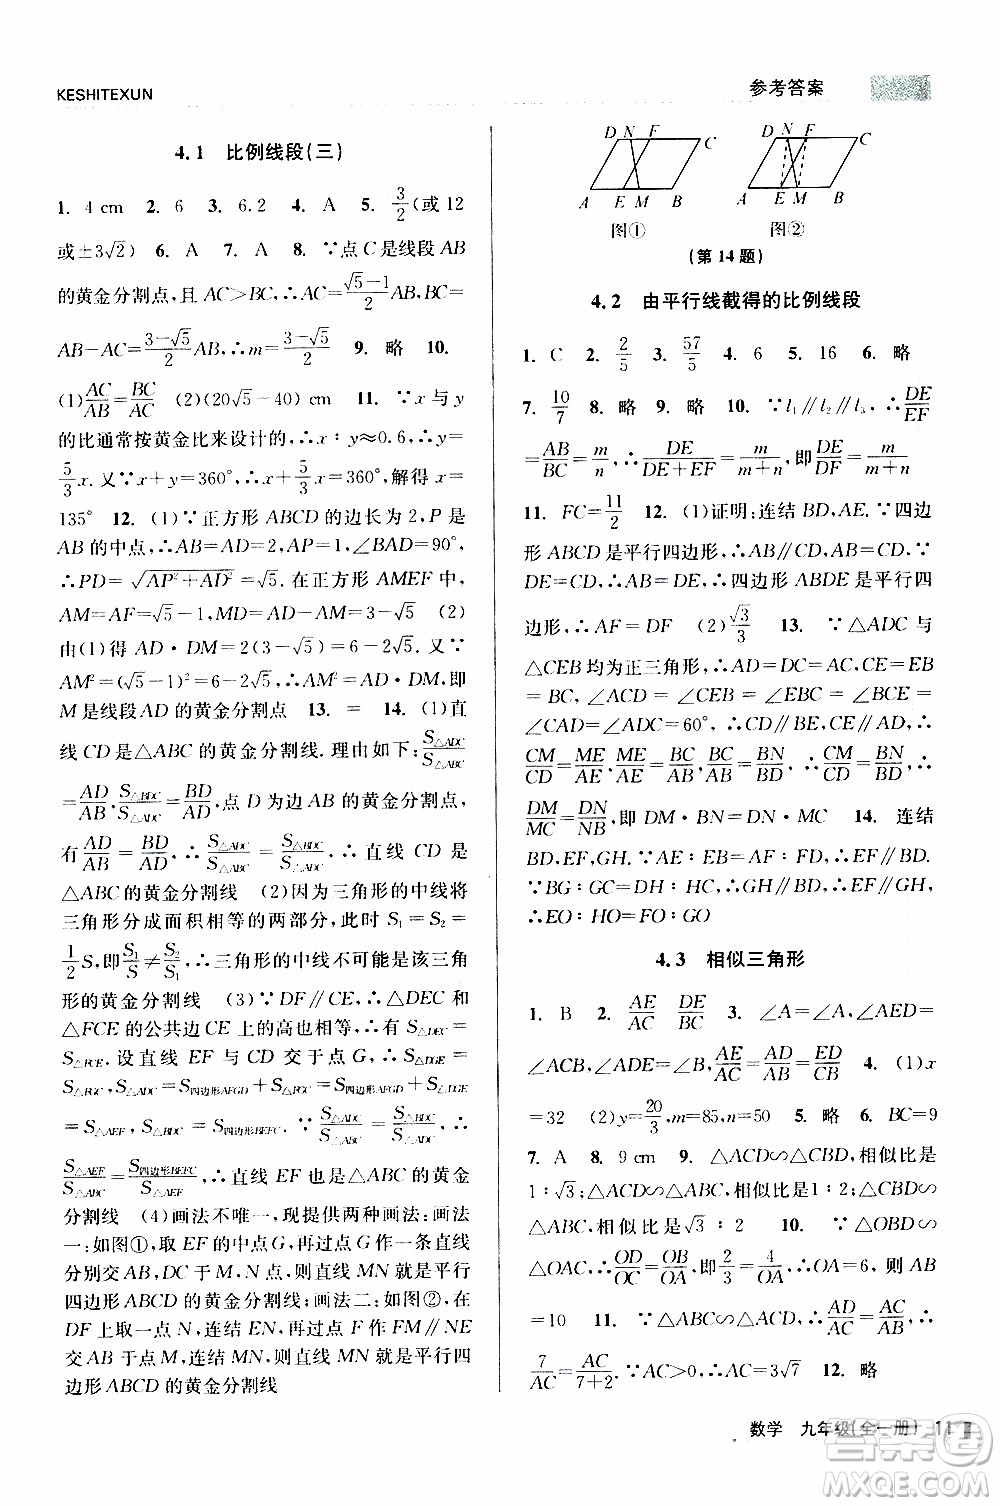 KESHITEXUN
参考答案
4.1 比例线段(三)
1. 4 cm 2. 6 3. 6.2 4. A 5. 3/2(或 12
或±3√2) 6. A 7. A 8. ∵点 C 是线段 AB
的黄金分割点,且 AC>BC,∴AC=(√5-1)/2 AB,BC=
AB-AC=(3-√5)/2 AB,∴m=(3-√5)/2 9. 略 10.
(1)AC/AB=BC/AC (2)(20√5-40) cm 11. ∵x 与 y
的比通常按黄金比来设计的,∴x∶y≈0.6,∴y=
5/3 x. 又∵x+y=360°,∴x+5/3 x=360°,∴x=
135° 12. (1)∵正方形 ABCD 的边长为 2,P 是
AB 的中点,∴AB=AD=2,AP=1,∠BAD=90°,
∴PD=√(AP²+AD²)=√5. 在正方形 AMEF 中,
AM=AF=√5-1,MD=AD-AM=3-√5 (2)
由(1)得 AD·DM=2(3-√5)=6-2√5,又∵
AM²=(√5-1)²=6-2√5,∴AM²=AD·DM,即
M 是线段 AD 的黄金分割点 13. = 14. (1)直
线 CD 是△ABC 的黄金分割线. 理由如下:S△ADC/S△ABC
=AD/AB,S△BDC/S△ADC=BD/AD,点 D 为边 AB 的黄金分割点,
有AD/AB=BD/AD,∴S△ADC/S△ABC=S△BDC/S△ADC,∴直线 CD 是
△ABC 的黄金分割线 (2)因为三角形的中线将
三角形分成面积相等的两部分,此时 S₁=S₂=
1/2 S,即S₁/S≠S₂/S₁,∴三角形的中线不可能是该三角
形的黄金分割线 (3)∵DF∥CE,∴△DEC 和
△FCE 的公共边 CE 上的高也相等,∴S△DEC=
S△FCE. 设直线 EF 与 CD 交于点 G,∴S△DGE=
S△FGC,∴S△ADC=S四边形AFGD+S△FGC=S四边形AFGD+S△DGE
=S△AEF,S△BDC=S四边形BEFC. ∵S△ADC/S△ABC=S△BDC/S△ADC,∴
S△AEF/S△ABC=S四边形BEFC/S△AEF,∴直线 EF 也是△ABC 的黄金
分割线 (4)画法不唯一,现提供两种画法:画法
一:如图①,取 EF 的中点 G,再过点 G 作一条直线
分别交 AB,DC 于 M,N 点,则直线 MN 就是平行
四边形 ABCD 的黄金分割线;画法二:如图②,在
DF 上取一点 N,连结 EN,再过点 F 作 FM∥NE
交 AB 于点 M,连结 MN,则直线 MN 就是平行四
边形 ABCD 的黄金分割线
D N F C D N F C
A E M B A E M B
图① 图②
(第 14 题)
4.2 由平行线截得的比例线段
1. C 2. 2/5 3. 57/5 4. 6 5. 16 6. 略
7. 10/7 8. 略 9. 略 10. ∵l₁∥l₂∥l₃,∴DE/EF
=AB/BC=m/n,∴DE/(DE+EF)=m/(m+n),即DE/DF=m/(m+n)
11. FC=11/2 12. (1)证明:连结 BD,AE. ∵四边
形 ABCD 是平行四边形,∴AB∥CD,AB=CD. ∵
DE=CD,∴AB∥DE,AB=DE,∴四边形 ABDE 是平行四
边形,∴AF=DF (2)√3/3 13. ∵△ADC 与
△CEB 均为正三角形,∴AD=DC=AC,CE=EB
=BC,∠ACD=∠CEB=∠EBC=∠ADC=
∠CAD=∠DAC=60°,∴CD∥BE,AD∥CE,∴
CM/CD=ME/AE,ME/AE=BC/AB,BC/AB=BN/BD,∴CM/CD=BN/BD,∴
DM/MC=DN/NB,即 DM·BN=DN·MC 14. 连结
BD,EF,GH. ∵AB=AD,BE∶AE=AF∶DF,∴EF∥BD.
∵BG∶GC=DH∶HC,∴GH∥BD,∴EF∥GH,
∴EO∶HO=FO∶GO
4.3 相似三角形
1. B 2. AE/AC DE/BC 3. ∠A=∠A,∠AED=
∠ACB,∠ADE=∠ABC,AE/AC=AD/AB=ED/CB 4. (1)x
=32 (2)y=20/3,m=85,n=50 5. 略 6. BC=9
7. A 8. 9 cm 9. △ACD∽△CBD,相似比是
1∶√3;△ACD∽△ABC,相似比是 1∶2;△CBD∽
△ABC,相似比是√3∶2 10. ∵△OBD∽
△OAC,∴OD/OC=OB/OA=2/3=4/OA,∴OA=6,所以 AB
=10 11. ∵△ABC∽△ACD,∴AD/AC=AC/AB,∴
7/AC=AC/(7+2). ∵AC>0,∴AC=3√7 12. 略
数学 九年级(全一册) 11
答案圈
MXQE.COM